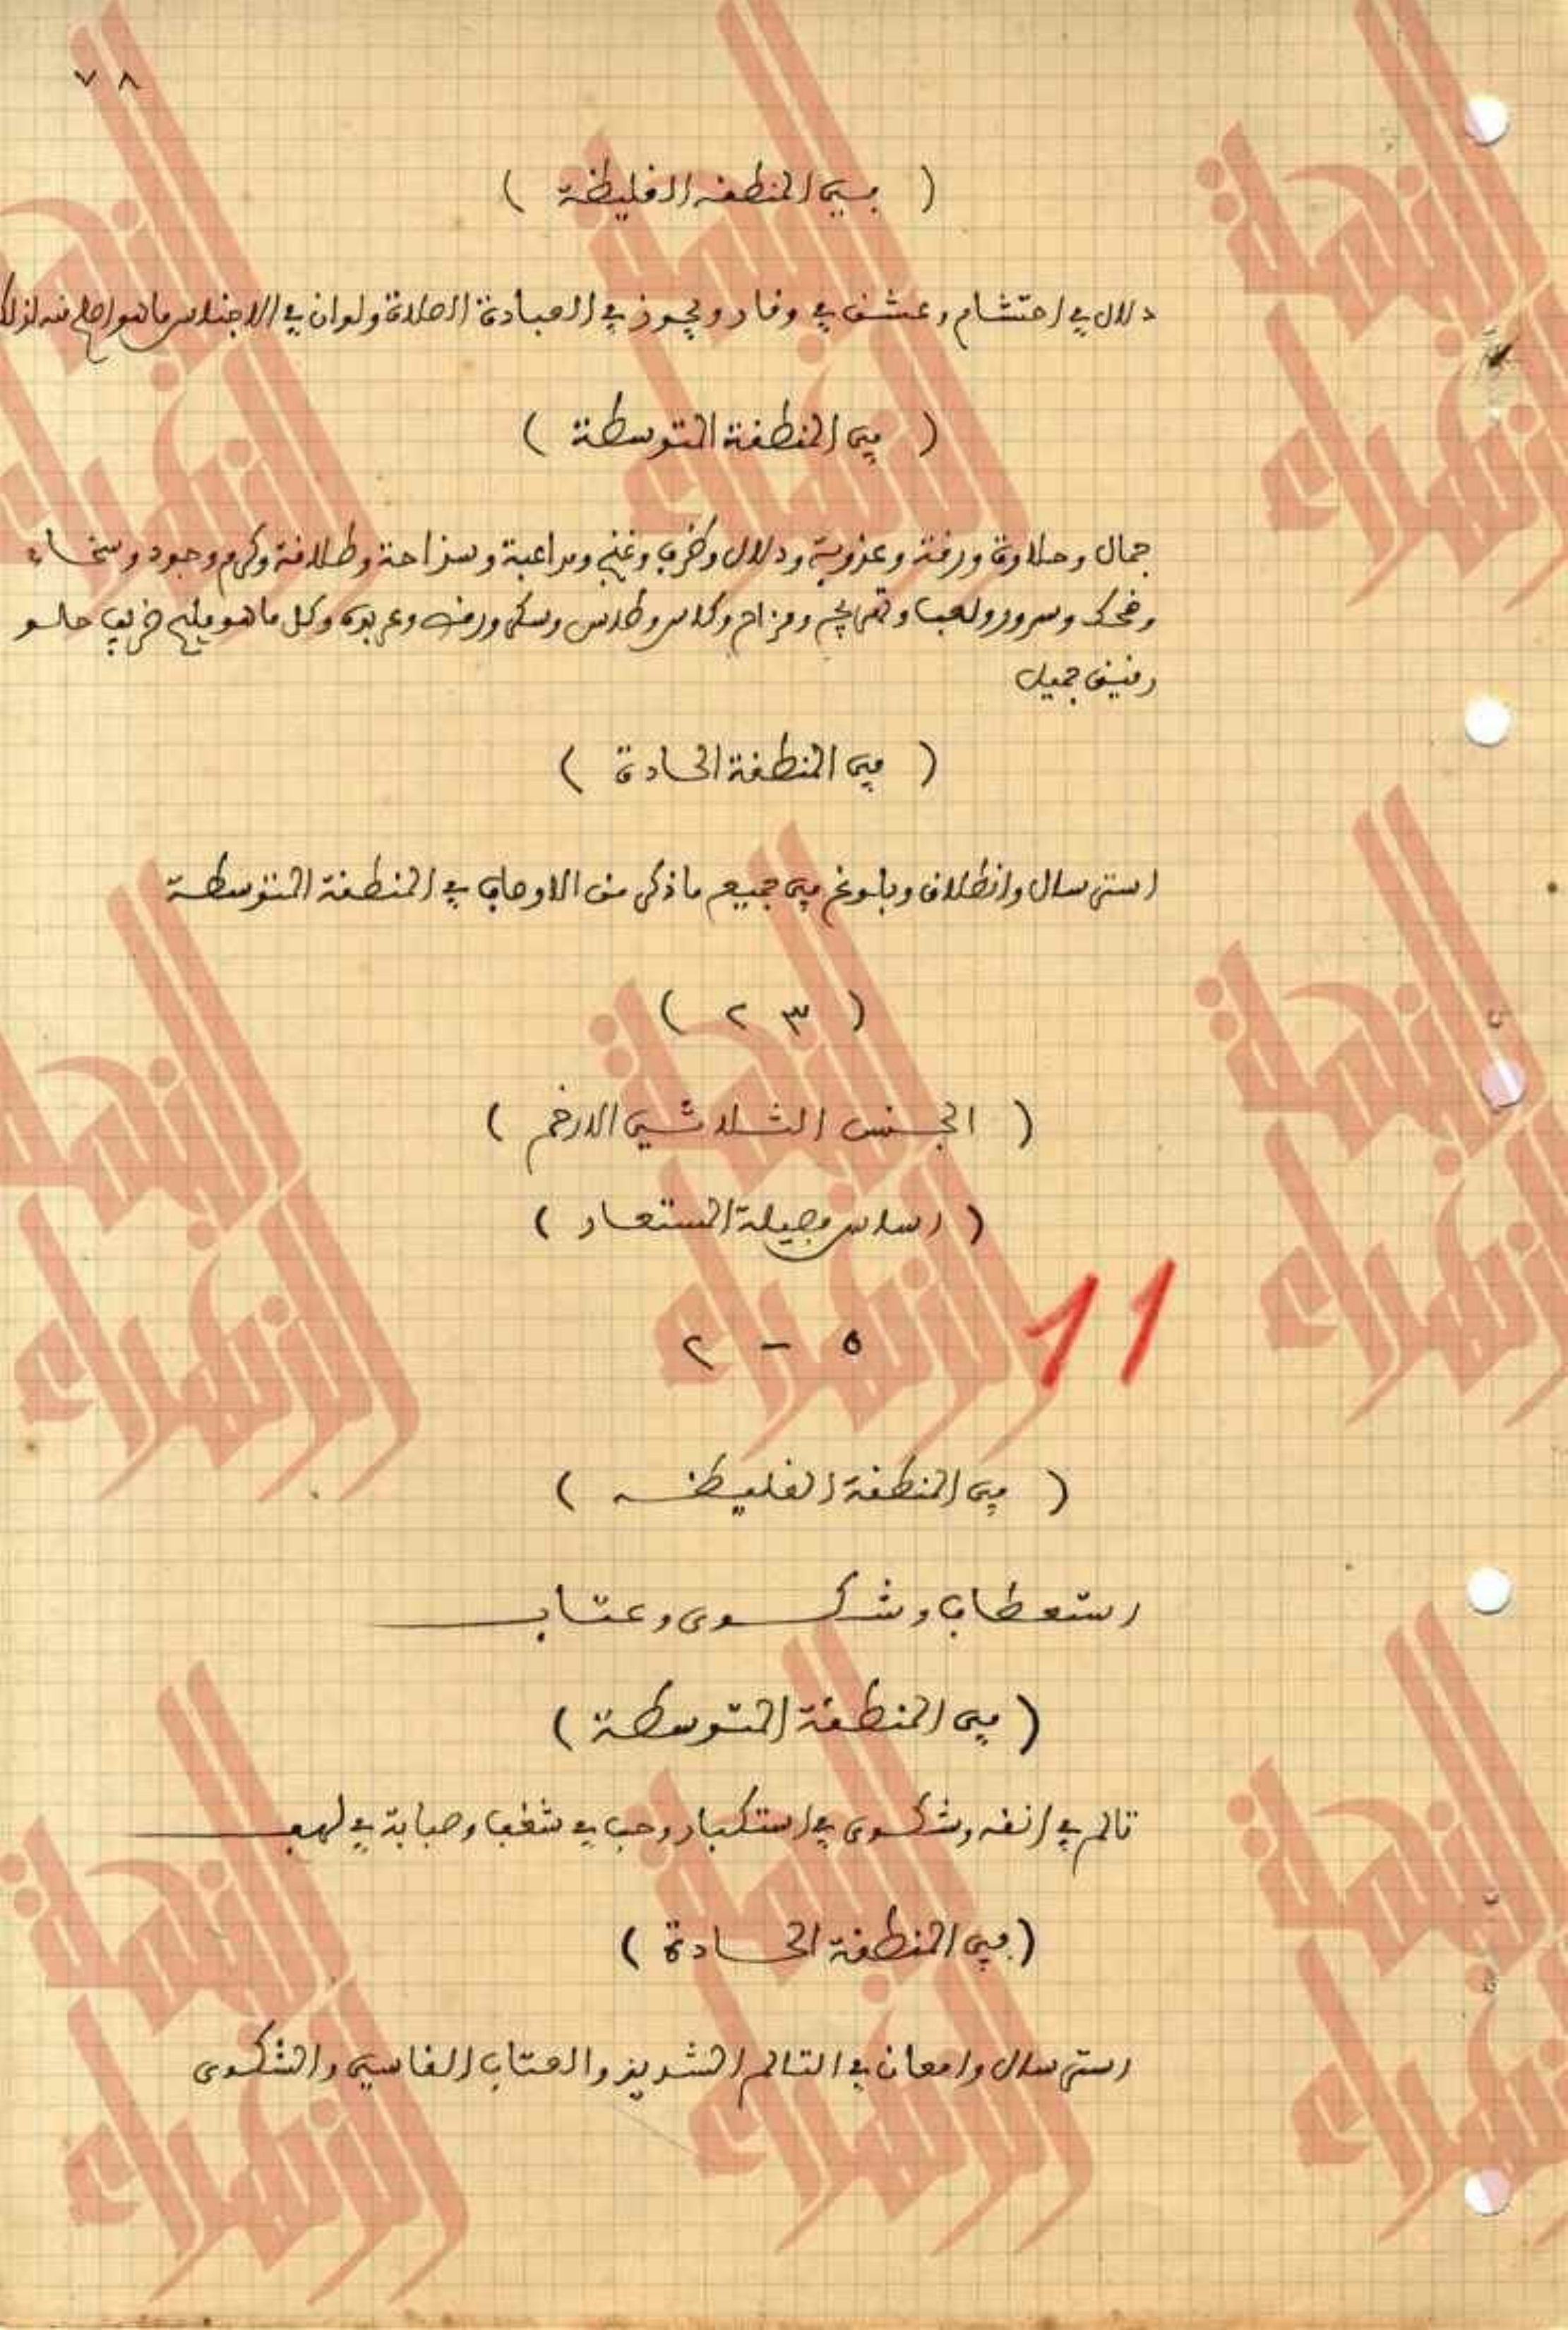 ٧٨
( في المنطقه الغليظة )
دلال في احتشام وعشق في وقار ويجوز في العبادة الصلاة ولوان في الاجناس ماهو اصلح منه لذلك
( في المنطقة المتوسطة )
جمال وحلاوة ورقة وعذوبة ودلال وظرف وغنج ومداعبة وسذاجة وطلاقة وكرم وجود وسخاء
وضحك وسرور ولعب وتهريج ومزاح وكاس وطاس وسكر ورقص وعربدة وكل ماهو مليح ظريف حلو
رقيق جميل
( في المنطقة الحادة )
استرسال وانطلاق وبلوغ في جميع ماذكر من الاوصاف في المنطقة المتوسطة
( ٢٣ )
( الجنس الثلاثي الارخم )
( اساس فصيلة المستعار )
٥ - ٢
11
( في المنطقة الغليظه )
استعطاف وشكوى وعتاب
( في المنطقة المتوسطة )
تالم في انفه وشكوى في استكبار وحب في شغف وصبابة في لهف
( في المنطقة الحادة )
استرسال وامعان في التالم الشديد والعتاب القاسي والشكوى
النهضة
الزهراء